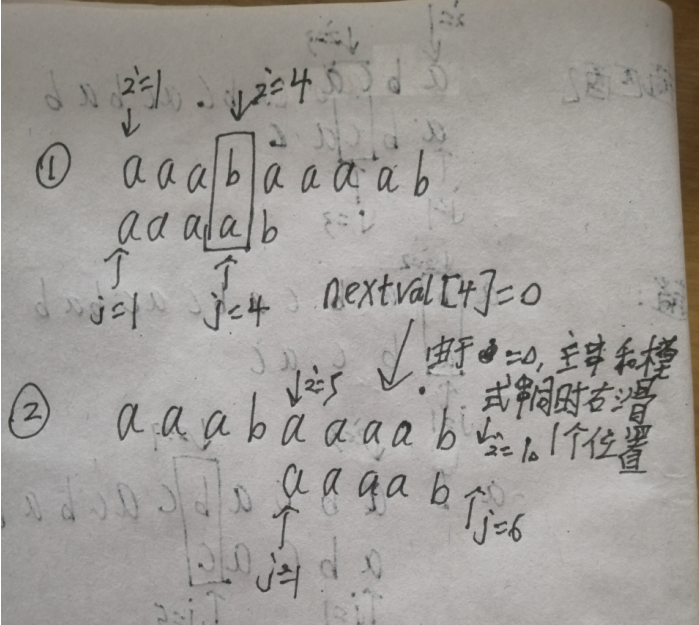 i=1 i=4
① a a a b a a a a b
a a a a b
j=1 j=4
nextval[4]=0
由于 =0, 主串和模
式串同时右滑
1个位置
i=5
② a a a b a a a a b i=10
a a a a b
j=1 j=6